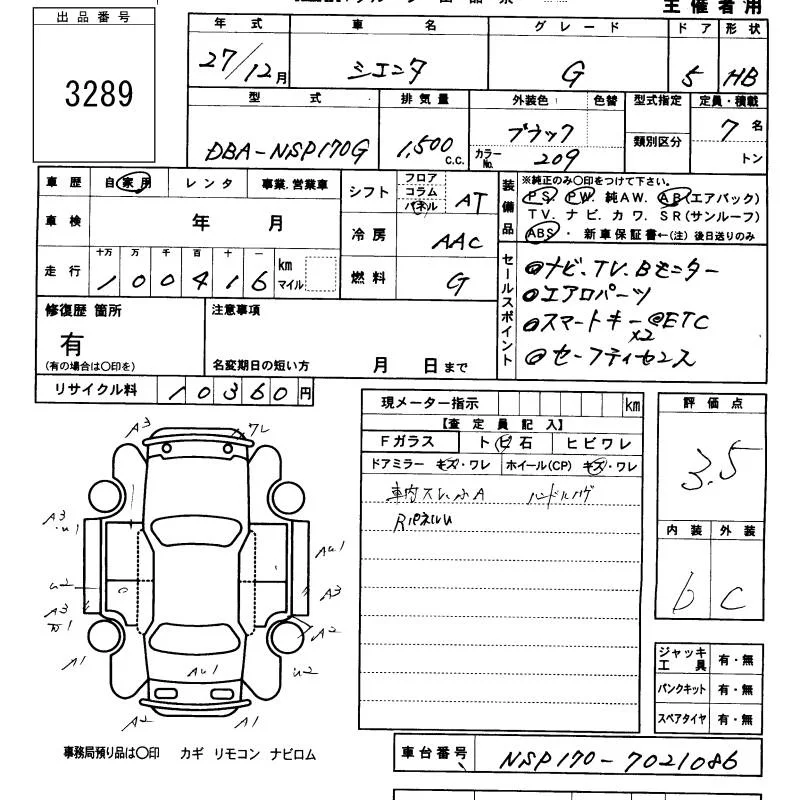 主催者用
出品番号
3289
年式 車名 グレード ドア 形状
27/12月 シエンタ G 5 HB
型式 排気量 外装色 色替 型式指定 定員・積載
DBA-NSP170G 1,500 c.c. ブラック カラーNo. 209 類別区分 7名 トン
車歴 自家用 レンタ 事業.営業車
車検 年 月
走行 十万 万 千 百 十 一 km マイル
100416
シフト フロア コラム パネル AT
冷房 AAC
燃料 G
装備品
※純正のみ〇印をつけて下さい。
PS. PW. 純AW. AB(エアバック)
TV. ナビ. カワ. SR(サンルーフ)
ABS・ 新車保証書←(注) 後日送りのみ
セールスポイント
◎ナビ.TV.Bモニター
◎エアロパーツ
◎スマートキー×2 ◎ETC
◎セーフティセンス
修復歴 箇所
有
(有の場合は〇印を)
注意事項
名変期日の短い方 月 日まで
リサイクル料 10360円
現メーター指示 km
【査定員記入】
Fガラス トビ石 ヒビワレ
ドアミラー キズ・ワレ ホイール(CP) キズ・ワレ
評価点
3.5
内装 外装
b C
A3 ワレ
A3
U1
AU1
U2
A3
A3
A2
A1
AU1
U2
A2 A1
ジャッキ工具 有・無
パンクキット 有・無
スペアタイヤ 有・無
事務局預り品は〇印 カギ リモコン ナビロム
車台番号 NSP170-7021086